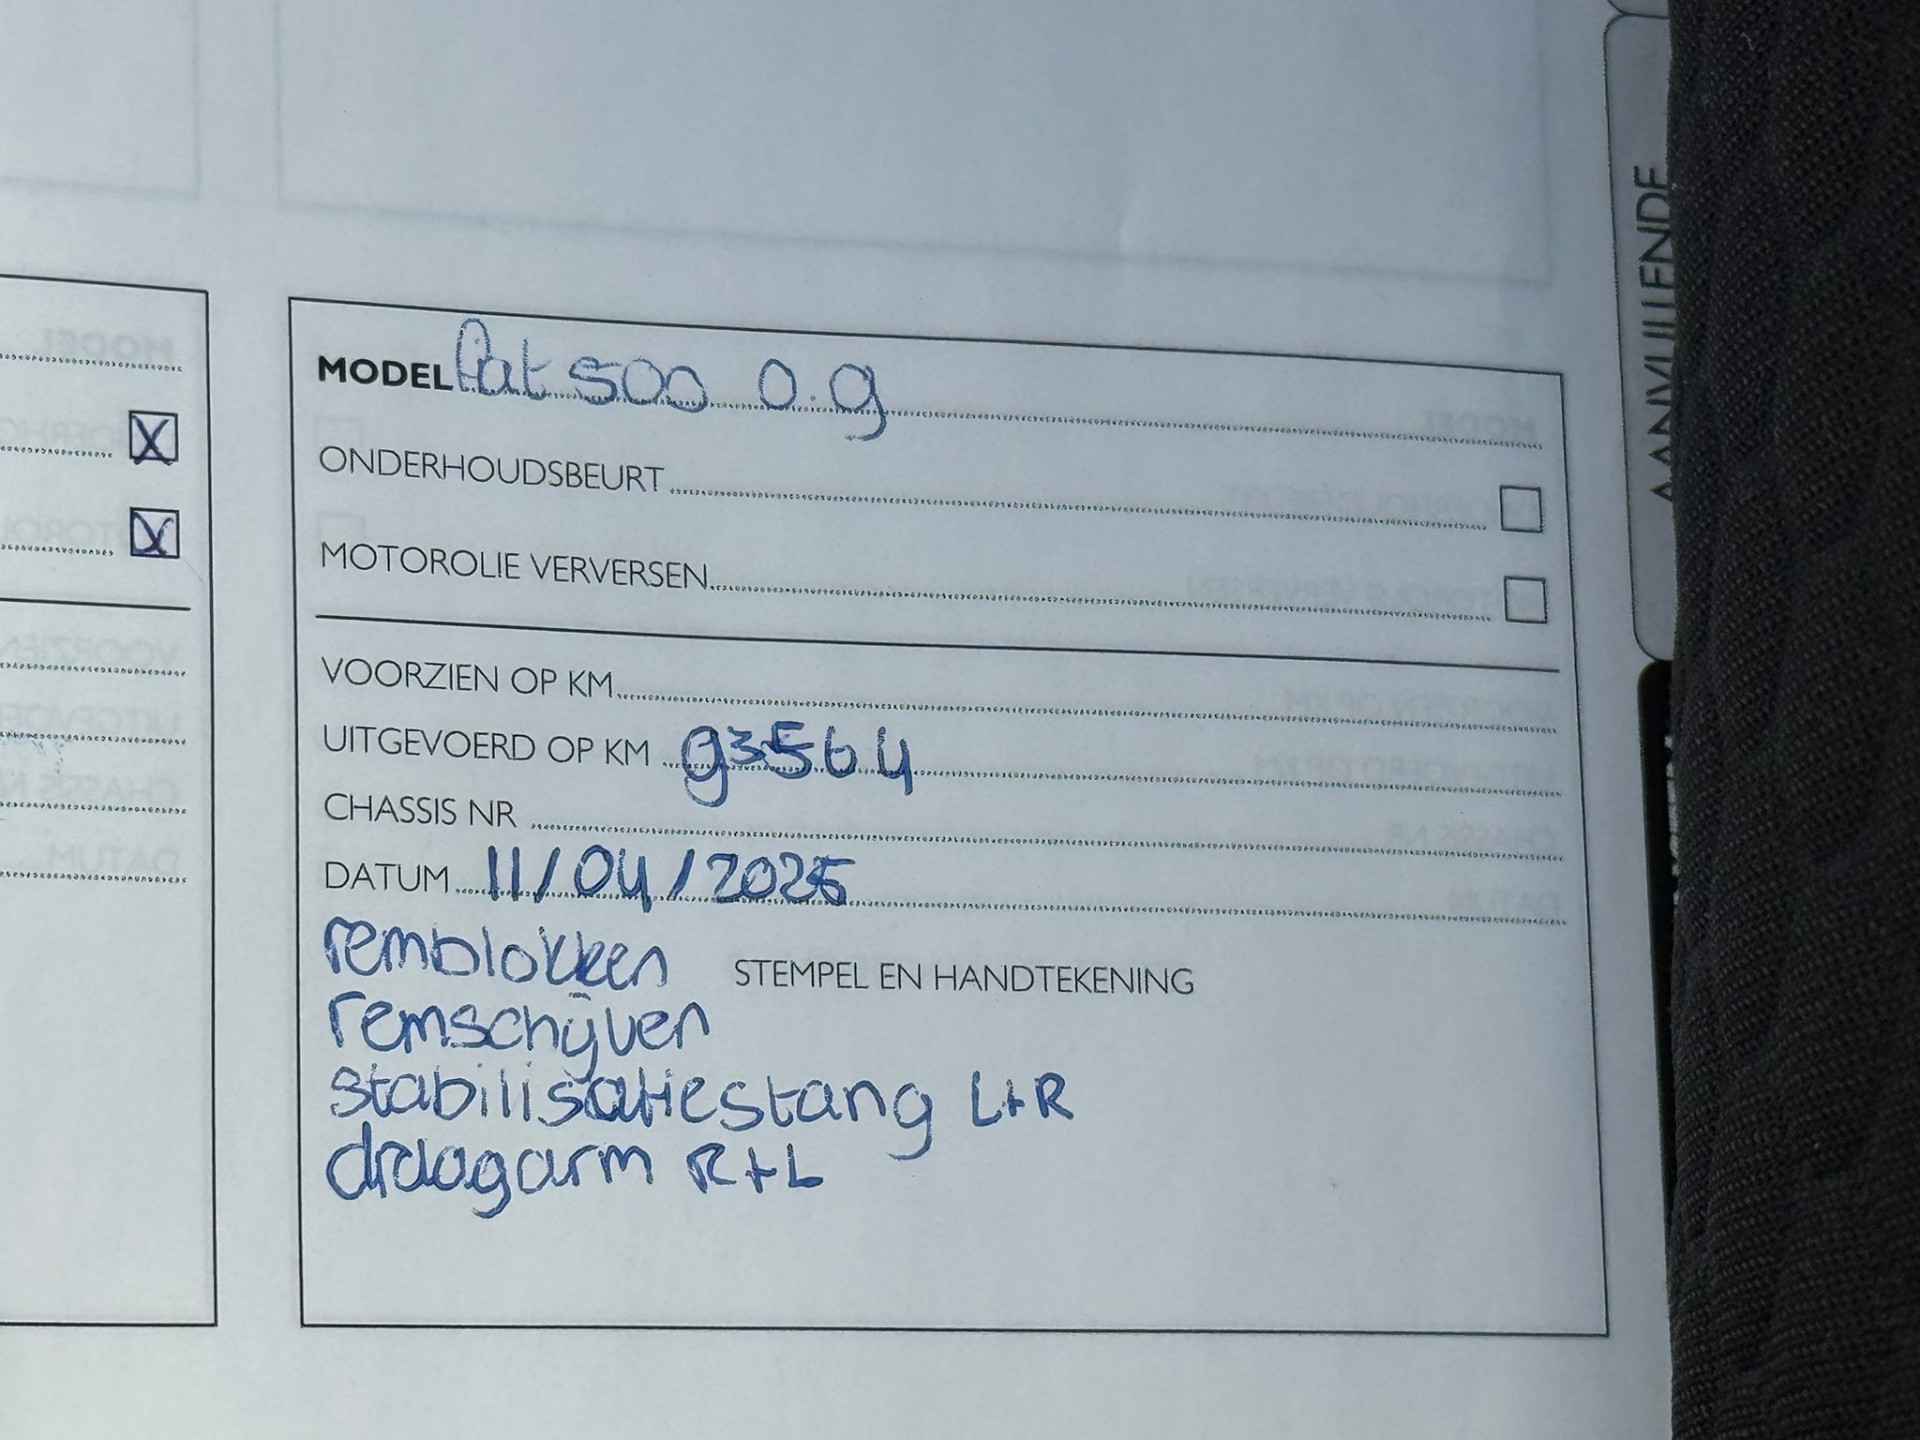 MODEL fiat 500 0.9
ONDERHOUDSBEURT
MOTOROLIE VERVERSEN
VOORZIEN OP KM
UITGEVOERD OP KM 93564
CHASSIS NR
DATUM 11/04/2025
remblokken
STEMPEL EN HANDTEKENING
remschijven
stabilisatiestang L+R
draagarm R+L
AANVULLENDE